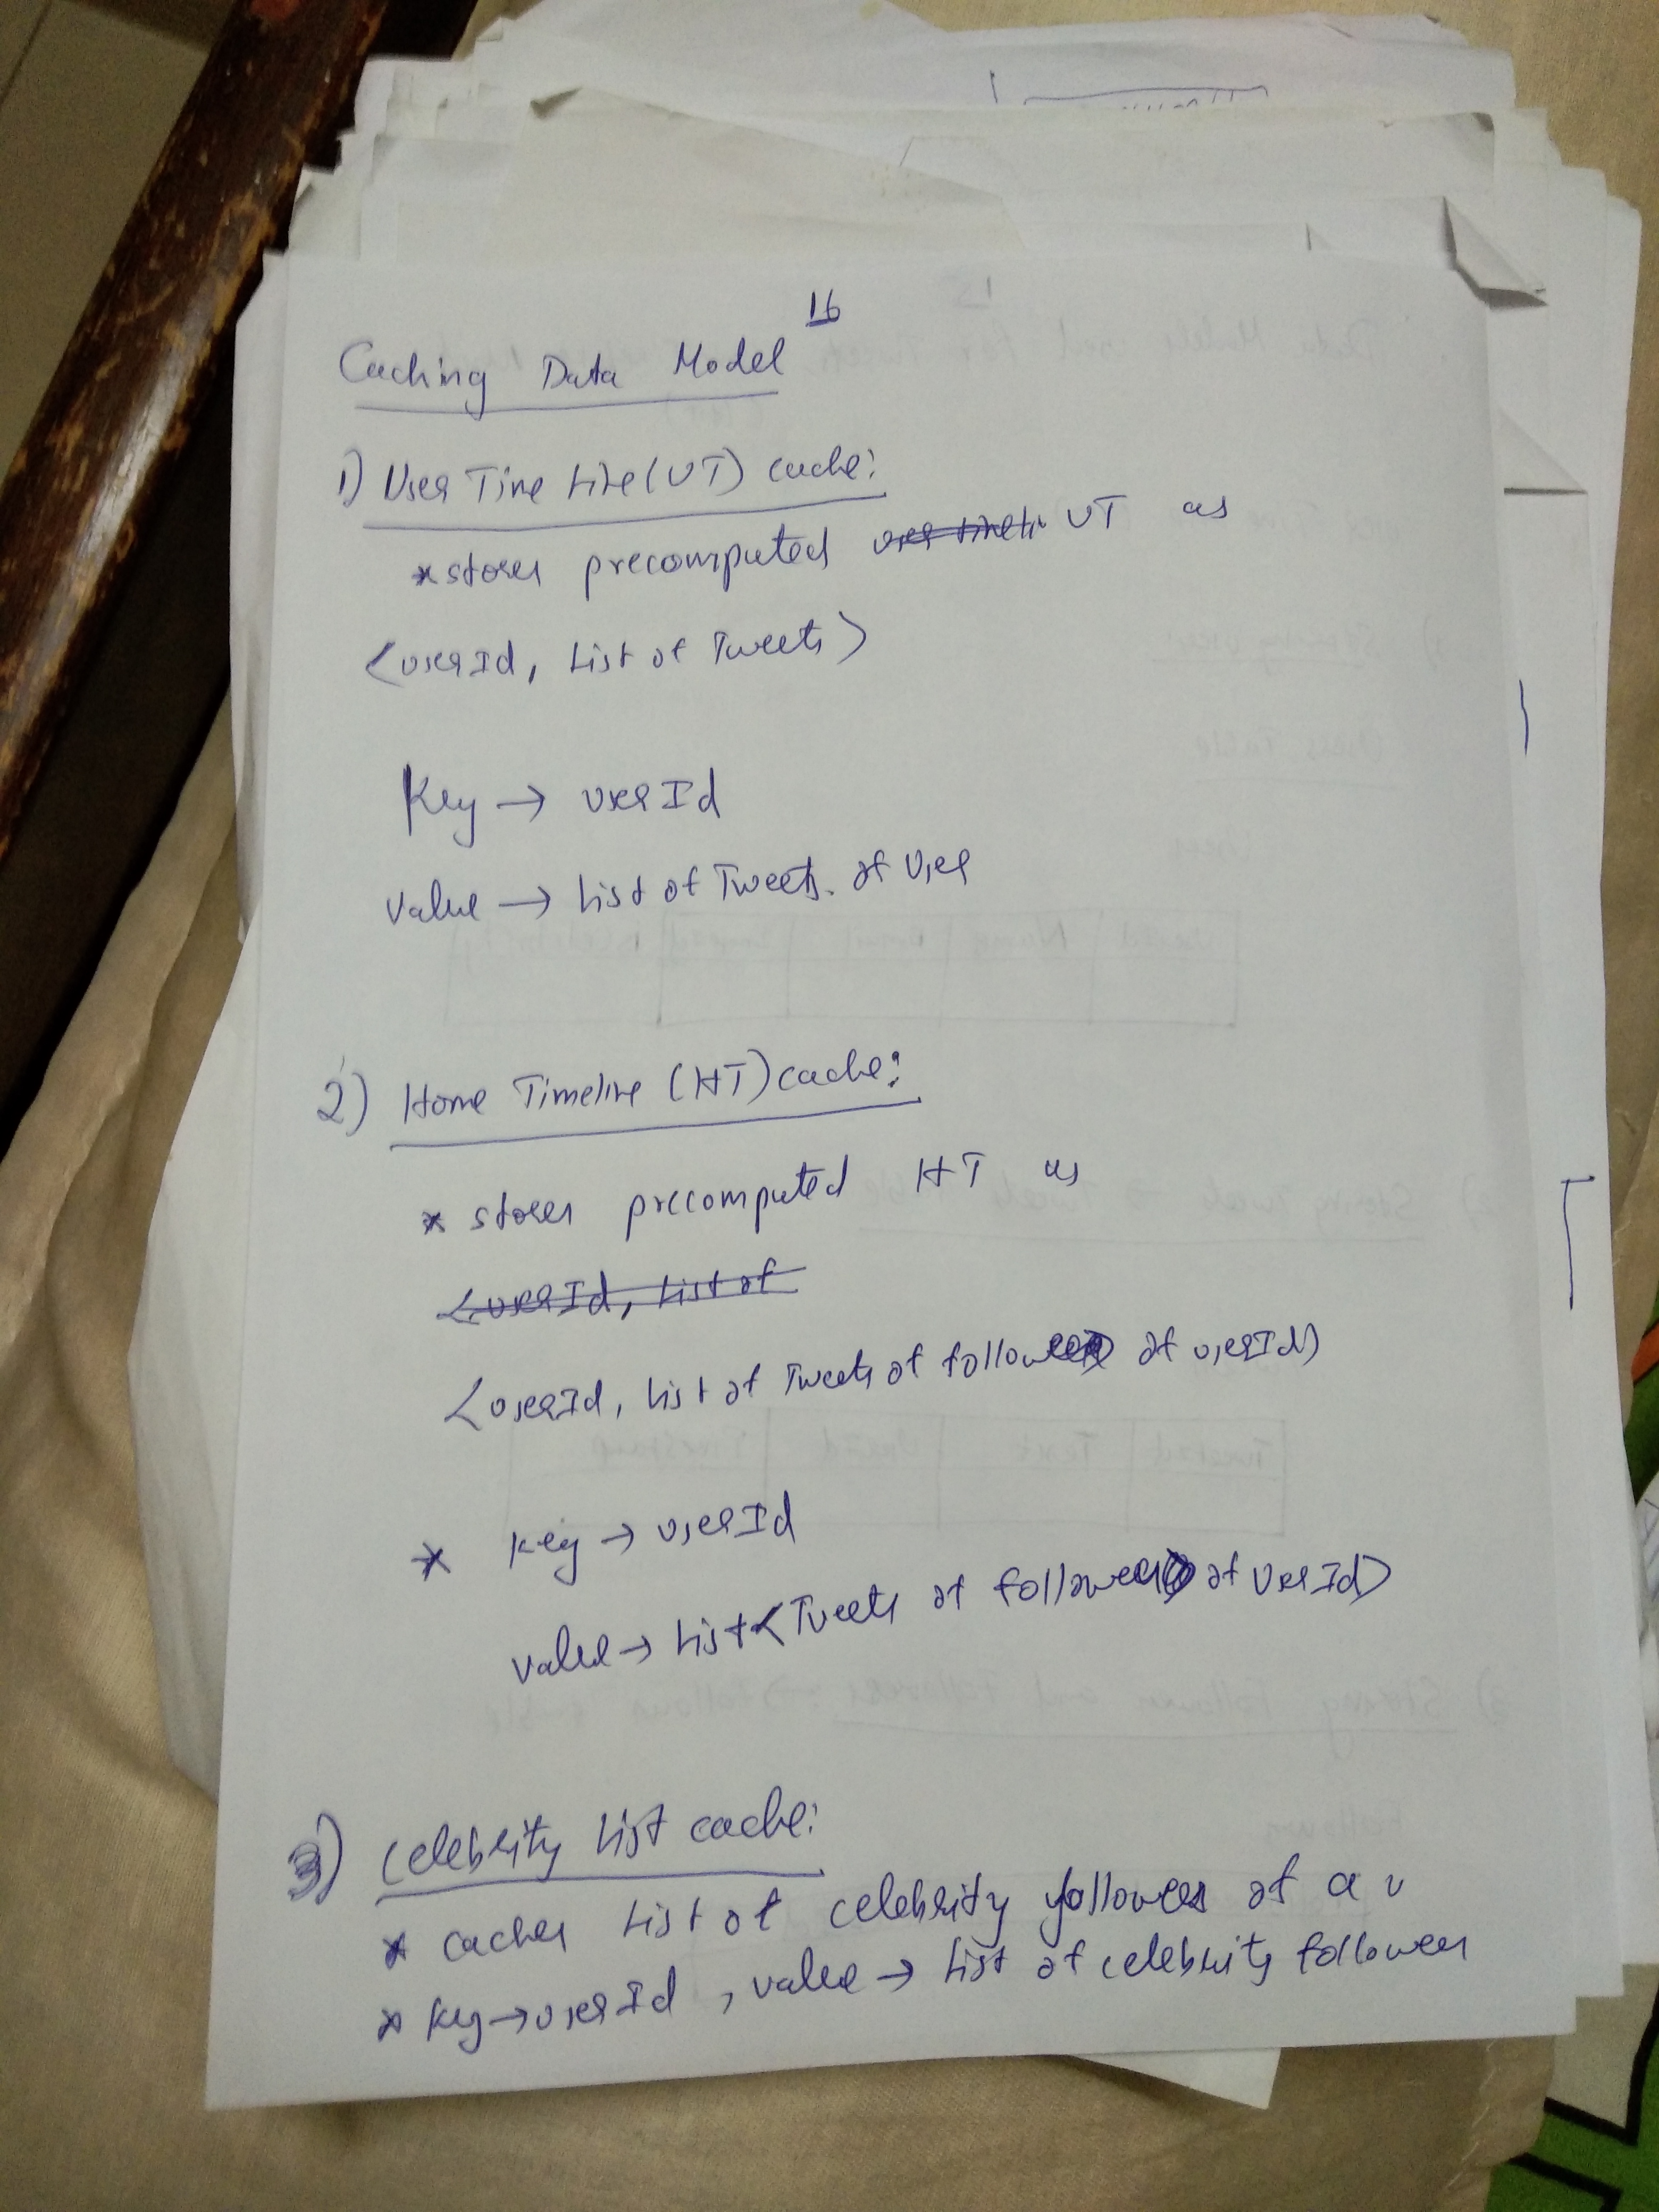 16
Caching Data Model
1) User Time Line (UT) cache:
* stores precomputed user timelin UT as
<userId, List of Tweets>
Key → userId
value → List of Tweets. of User
2) Home Timeline (HT) cache:
* stores precomputed HT as
<userId, List of
<userId, List of Tweets of followees of userId>
* Key → userId
value → List<Tweets of followees of UserId>
3) Celebrity List cache:
* caches List of celebrity followees of a u
* Key → userId , value → List of celebrity followees